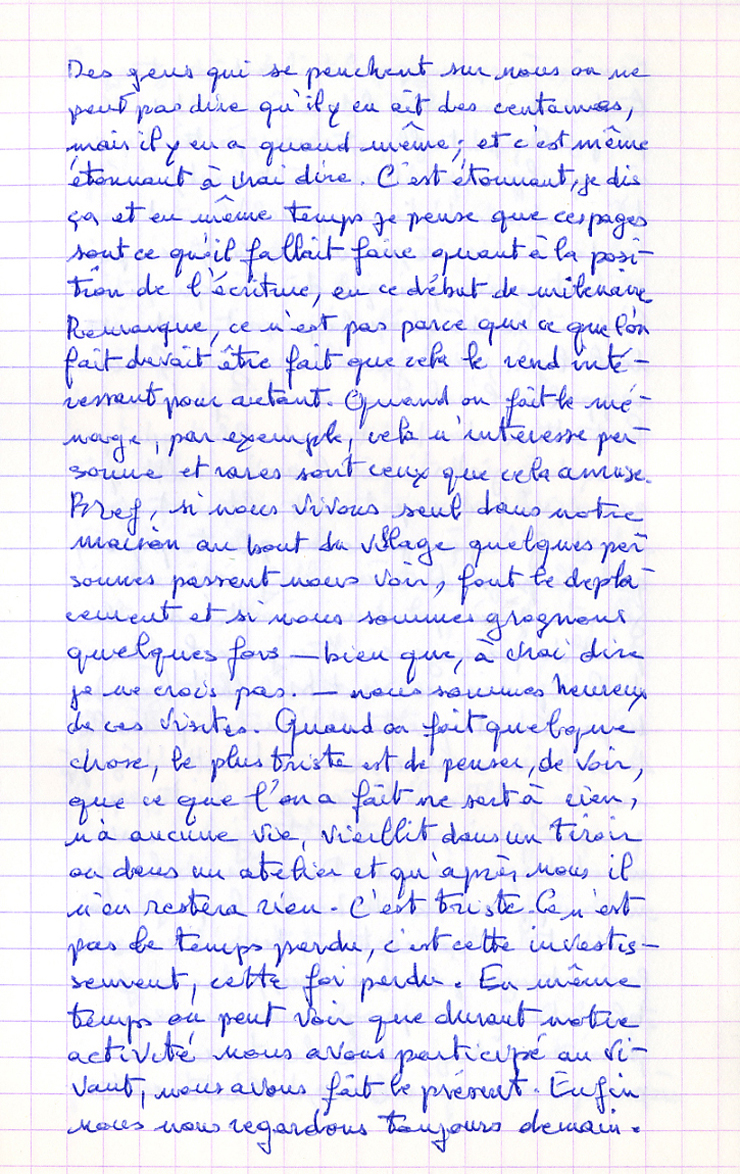 Des gens qui se penchent sur nous on ne
peut pas dire qu'il y en ait des centaines,
mais il y en a quand même ; et c'est même
étonnant à vrai dire. C'est étonnant, je dis
ça et en même temps je pense que ces pages
sont ce qu'il fallait faire quant à la posi-
tion de l'écriture, en ce début de millénaire
Remarque, ce n'est pas parce que ce que l'on
fait devait être fait que cela le rend inté-
ressant pour autant. Quand on fait le mé-
nage, par exemple, cela n'intéresse per-
sonne et rares sont ceux que cela amuse.
Bref, si nous vivons seul dans notre
maison au bout du village quelques per-
sonnes passent nous voir, font le dépla-
cement et si nous sommes grognons
quelques fois — bien que, à vrai dire
je ne crois pas. — nous sommes heureux
de ces visites. Quand on fait quelque
chose, le plus triste est de penser, de voir,
que ce que l'on a fait ne sert à rien,
n'a aucune vie, vieillit dans un tiroir
ou dans un atelier et qu'après nous il
n'en restera rien. C'est triste. Ce n'est
pas le temps perdu, c'est cette investis-
sement, cette foi perdu. En même
temps on peut voir que durant notre
activité nous avons participé au vi-
vant, nous avons fait le présent. Enfin
nous nous regardons toujours demain.